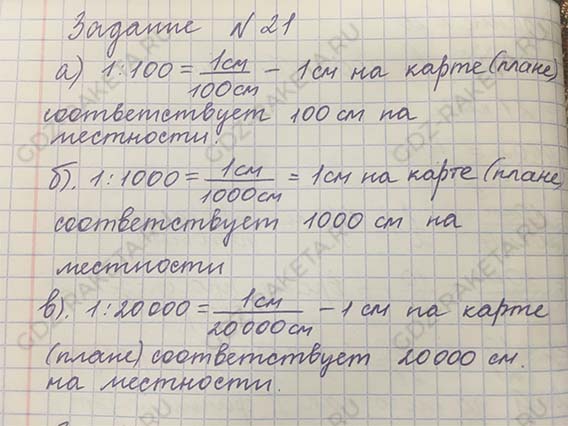 Задание N 21
а) 1:100 = 1см/100см - 1см на карте (плане)
соответствует 100 см на
местности.
б). 1:1000 = 1см/1000см = 1см на карте (плане)
соответствует 1000 см на
местности
в). 1:20000 = 1см/20000см - 1 см на карте
(плане) соответствует 20000 см.
на местности.
GDZ-RAKETA.RU